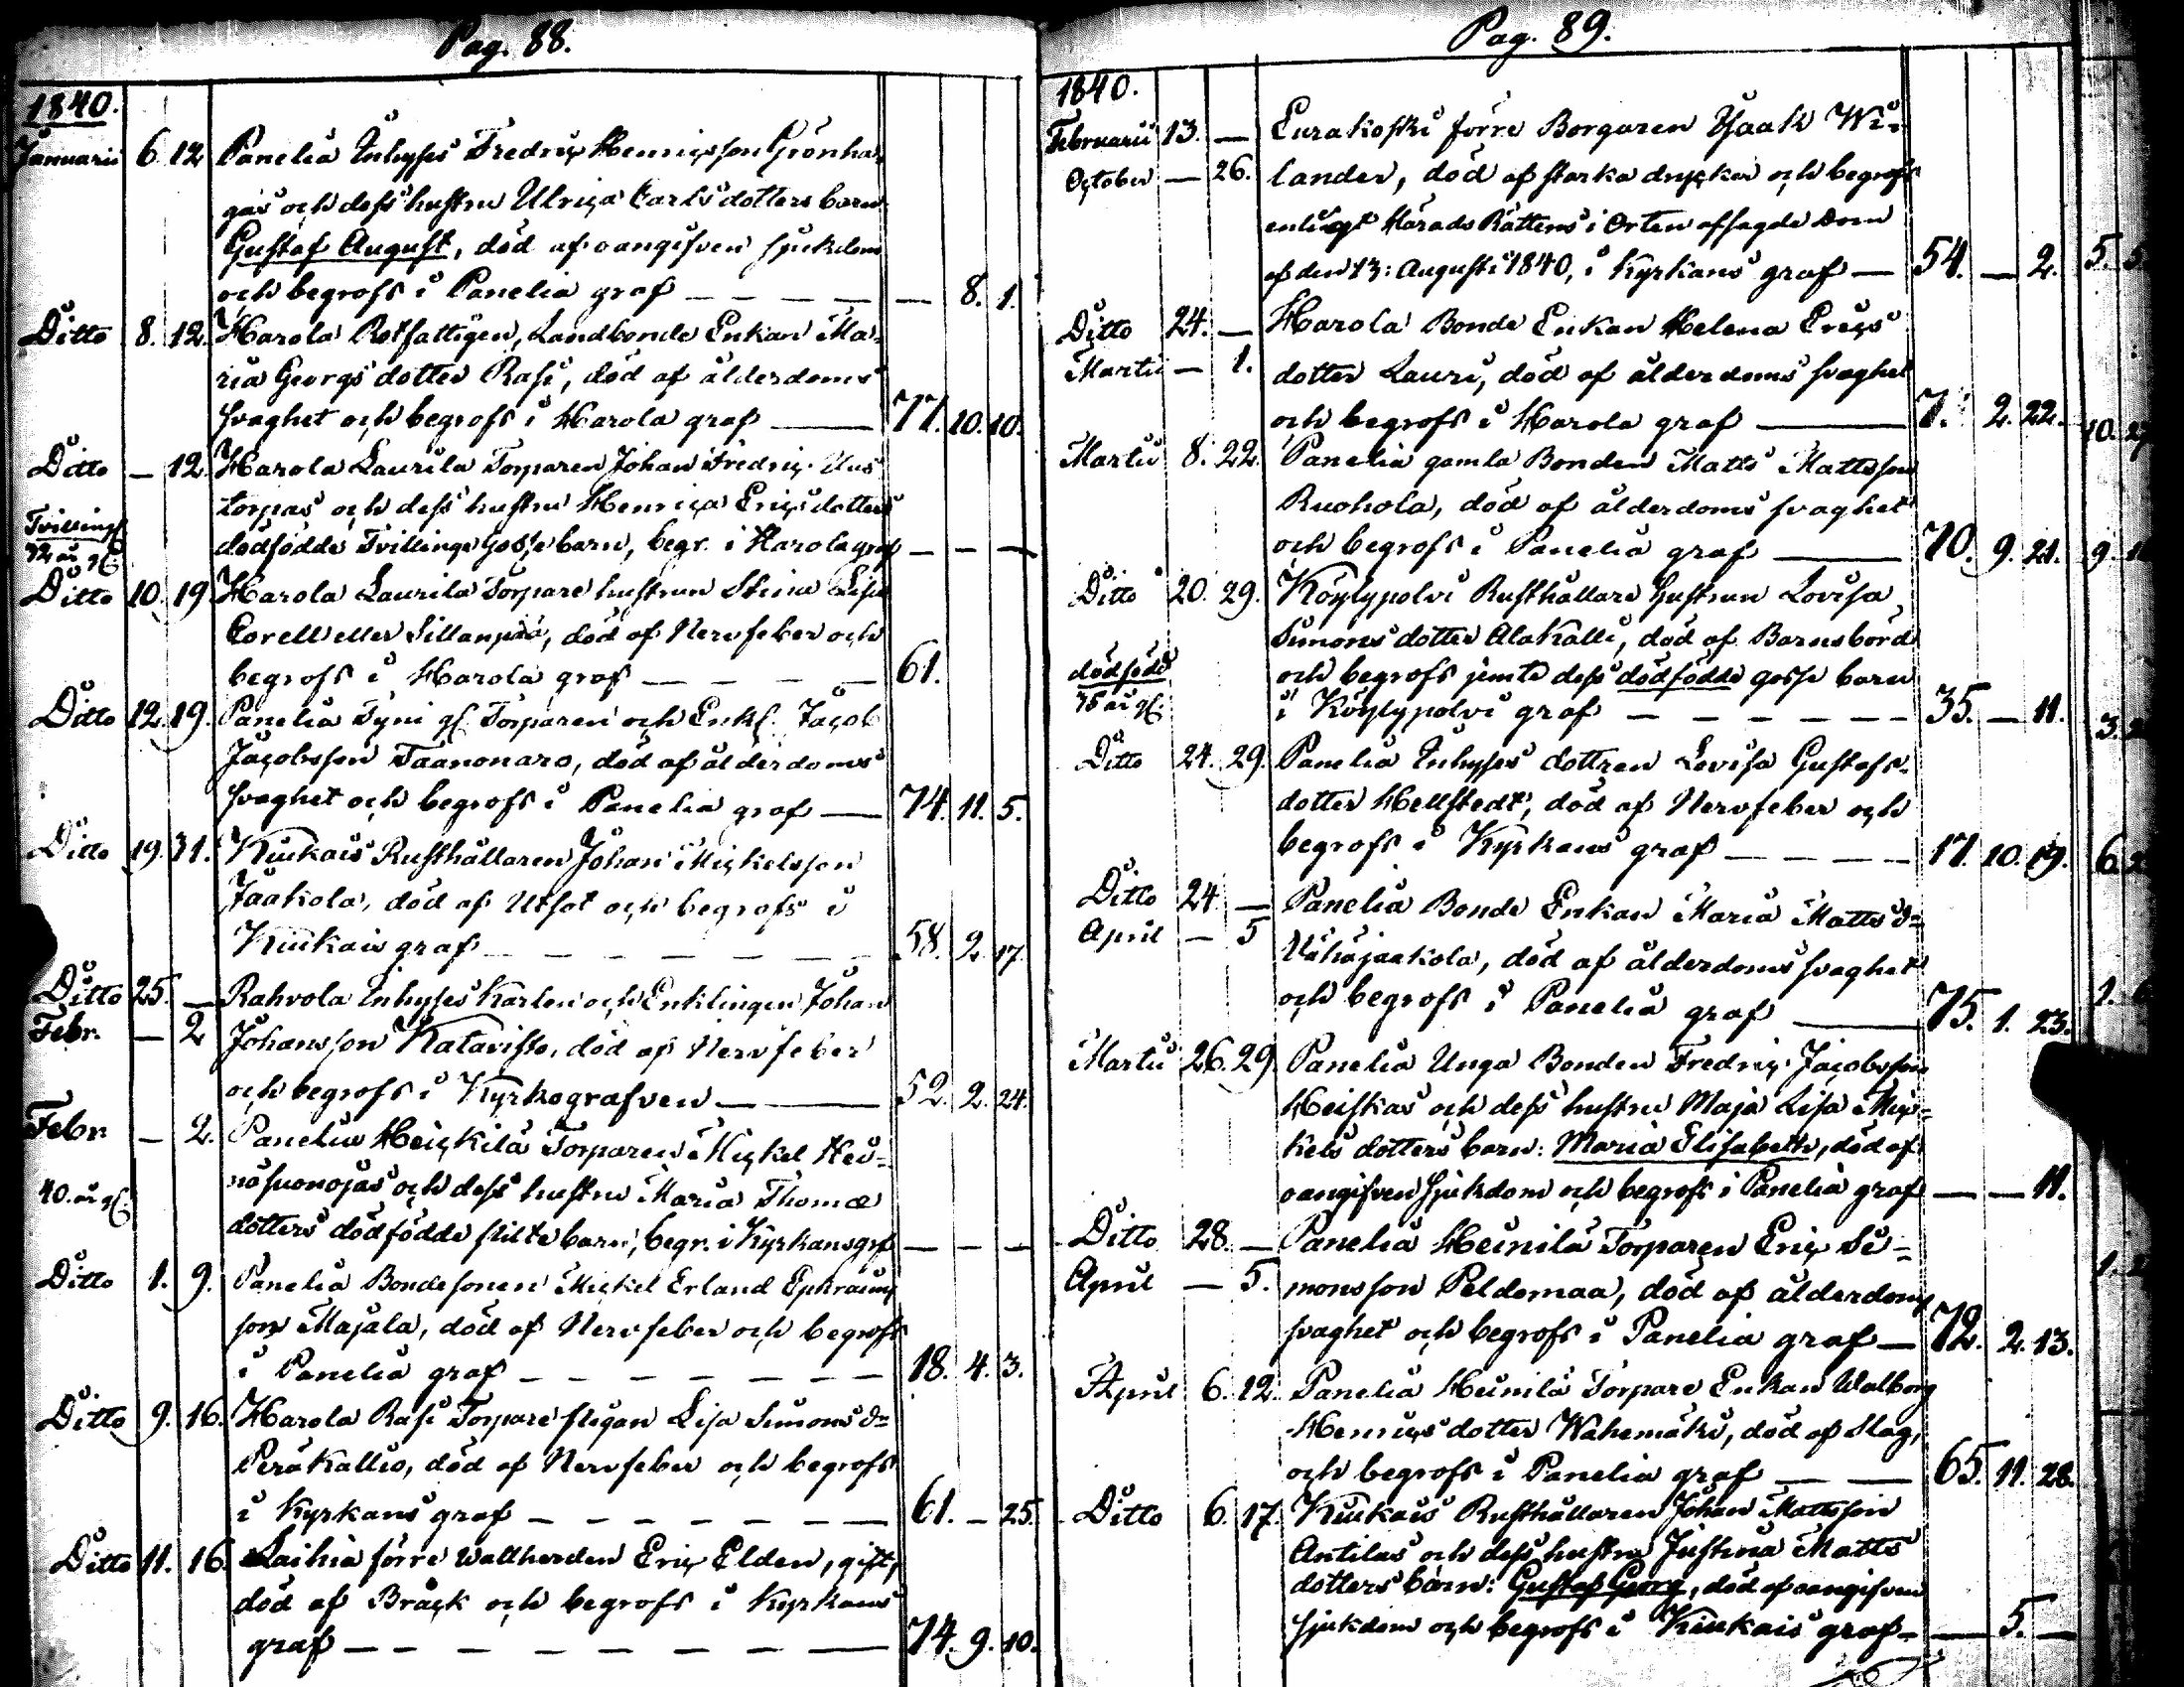 Pag. 88.
1840.
Januarii 6. 12. Panelia Inhyses Fredriç Henriçsson Grönha-
gas och dess hustru Ulriça Carlsdotters barn
Gustaf August, död af oangifven sjukdom
och begrofs i Panelia graf — — — — — — 8. 1.
Ditto 8. 12. Harola Rotfattigen, Landbonde Enkan Ma-
ria Georgs dotter Rasi, död af ålderdoms
svaghet och begrofs i Harola graf — 77. 10. 10.
Ditto — 12. Harola Laurila Torparen Johan Fredriç Uus
torpas och dess hustru Henriça Eriçsdotters
Tvilling
dödfödde Tvillinge Gosse barn, begr. i Harola graf — — —
72 år gl.
Ditto 10. 19. Harola Laurila Torpare hustrun Stina Lisa
Corell eller Sillanpää, död af Nervfeber och
begrofs i Harola graf — — — — 61.
Ditto 12. 19. Panelia Tyni gl. Torparen och Enkl. Jacob
Jaçobsson Taanonaro, död af ålderdoms
svaghet och begrofs i Panelia graf — 74. 11. 5.
Ditto 19. 31. Kiukais Rusthållaren Johan Miçkelsson
Jaakola, död af Utsot och begrofs i
Kiukais graf — — — — — — — 58. 2. 17.
Ditto 25. — Rahvola Inhyses Karlen och Enklingen Johan
Febr. — 2 Johansson Katavisto, död af Nervfeber
och begrofs i Kyrkografven — — 52. 2. 24.
Febr. — 2. Panelia Heiçkilä Torparen Miçkel Hei-
näsuonojas och dess hustru Maria Thomæ
40. år gl.
dotters dödfödde flicke barn, begr. i Kyrkans graf — — —
Ditto 1. 9. Panelia Bondesonen Miçkel Erland Ephraims
son Majala, död af Nervfeber och begrofs
i Panelia graf — — — — — — — 18. 4. 3.
Ditto 9. 16. Harola Rasi Torpare fligan Lisa Simons d=
Peräkallio, död af Nervfeber och begrofs
i Kyrkans graf — — — — — — — 61. — 25.
Ditto 11. 16. Laihia förre Wallherden Eriç Elden, gift,
död af Bråçk och begrofs i Kyrkans
graf — — — — — — — — 74. 9. 10.
Pag. 89.
1840.
Februarii 13. — Eurakoski förre Borgaren Isaak Wi-
October — 26. lander, död af starka dryçker och begrofs
enligt Härads Rättens i Orten afsagde Dom
af den 13: Augusti 1840, i Kyrkans graf — 54. — 2.
Ditto 24. — Harola Bonde Enkan Helena Eriçs
Martii — 1. dotter Lauri, död af ålderdoms svaghet
och begrofs i Harola graf — 7. 2. 22.
Martii 8. 22. Panelia gamla Bonden Matts Mattsson
Ruohola, död af ålderdoms svaghet
och begrofs i Panelia graf — 70. 9. 21.
Ditto 20. 29. Köylypolvi Rusthållare hustrun Lovisa
Simons dotter Alakalli, död af Barnsbörd
dödfödd
och begrofs jemte dess dödfödde gosse barn
35 år gl.
i Köylypolvi graf — — — — — — 35. — 11.
Ditto 24. 29. Panelia Inhyses dottren Lovisa Gustafs-
dotter Hellstedt, död af Nervfeber och
begrofs i Kyrkans graf — — — — 17. 10. 19.
Ditto 24 — Panelia Bonde Enkan Maria Matts d=
April — 5 Vähäjaakola, död af ålderdoms svaghet
och begrofs i Panelia graf — 75. 1. 23.
Martii 26. 29. Panelia Unga Bonden Fredriç Jaçobsson
Heiskas och dess hustru Maja Lisa Miç-
kels dotters barn: Maria Elisabeth, död af
oangifven sjukdom och begrofs i Panelia graf — — 11.
Ditto 28. — Panelia Heinilä Torparen Eriç Si-
April — 5. monsson Peldomaa, död af ålderdoms
svaghet och begrofs i Panelia graf — 72. 2. 13.
April 6. 12. Panelia Heinilä Torpare Enkan Walborg
Henriçs dotter Wahemäki, död af Slag,
och begrofs i Panelia graf — — 65. 11. 28.
Ditto 6. 17. Kiukais Rusthållaren Johan Mattsson
Antilas och dess hustru Justina Matts
dotters barn: Gustaf Georg, död af oangifven
sjukdom och begrofs i Kiukais graf — — 5. —